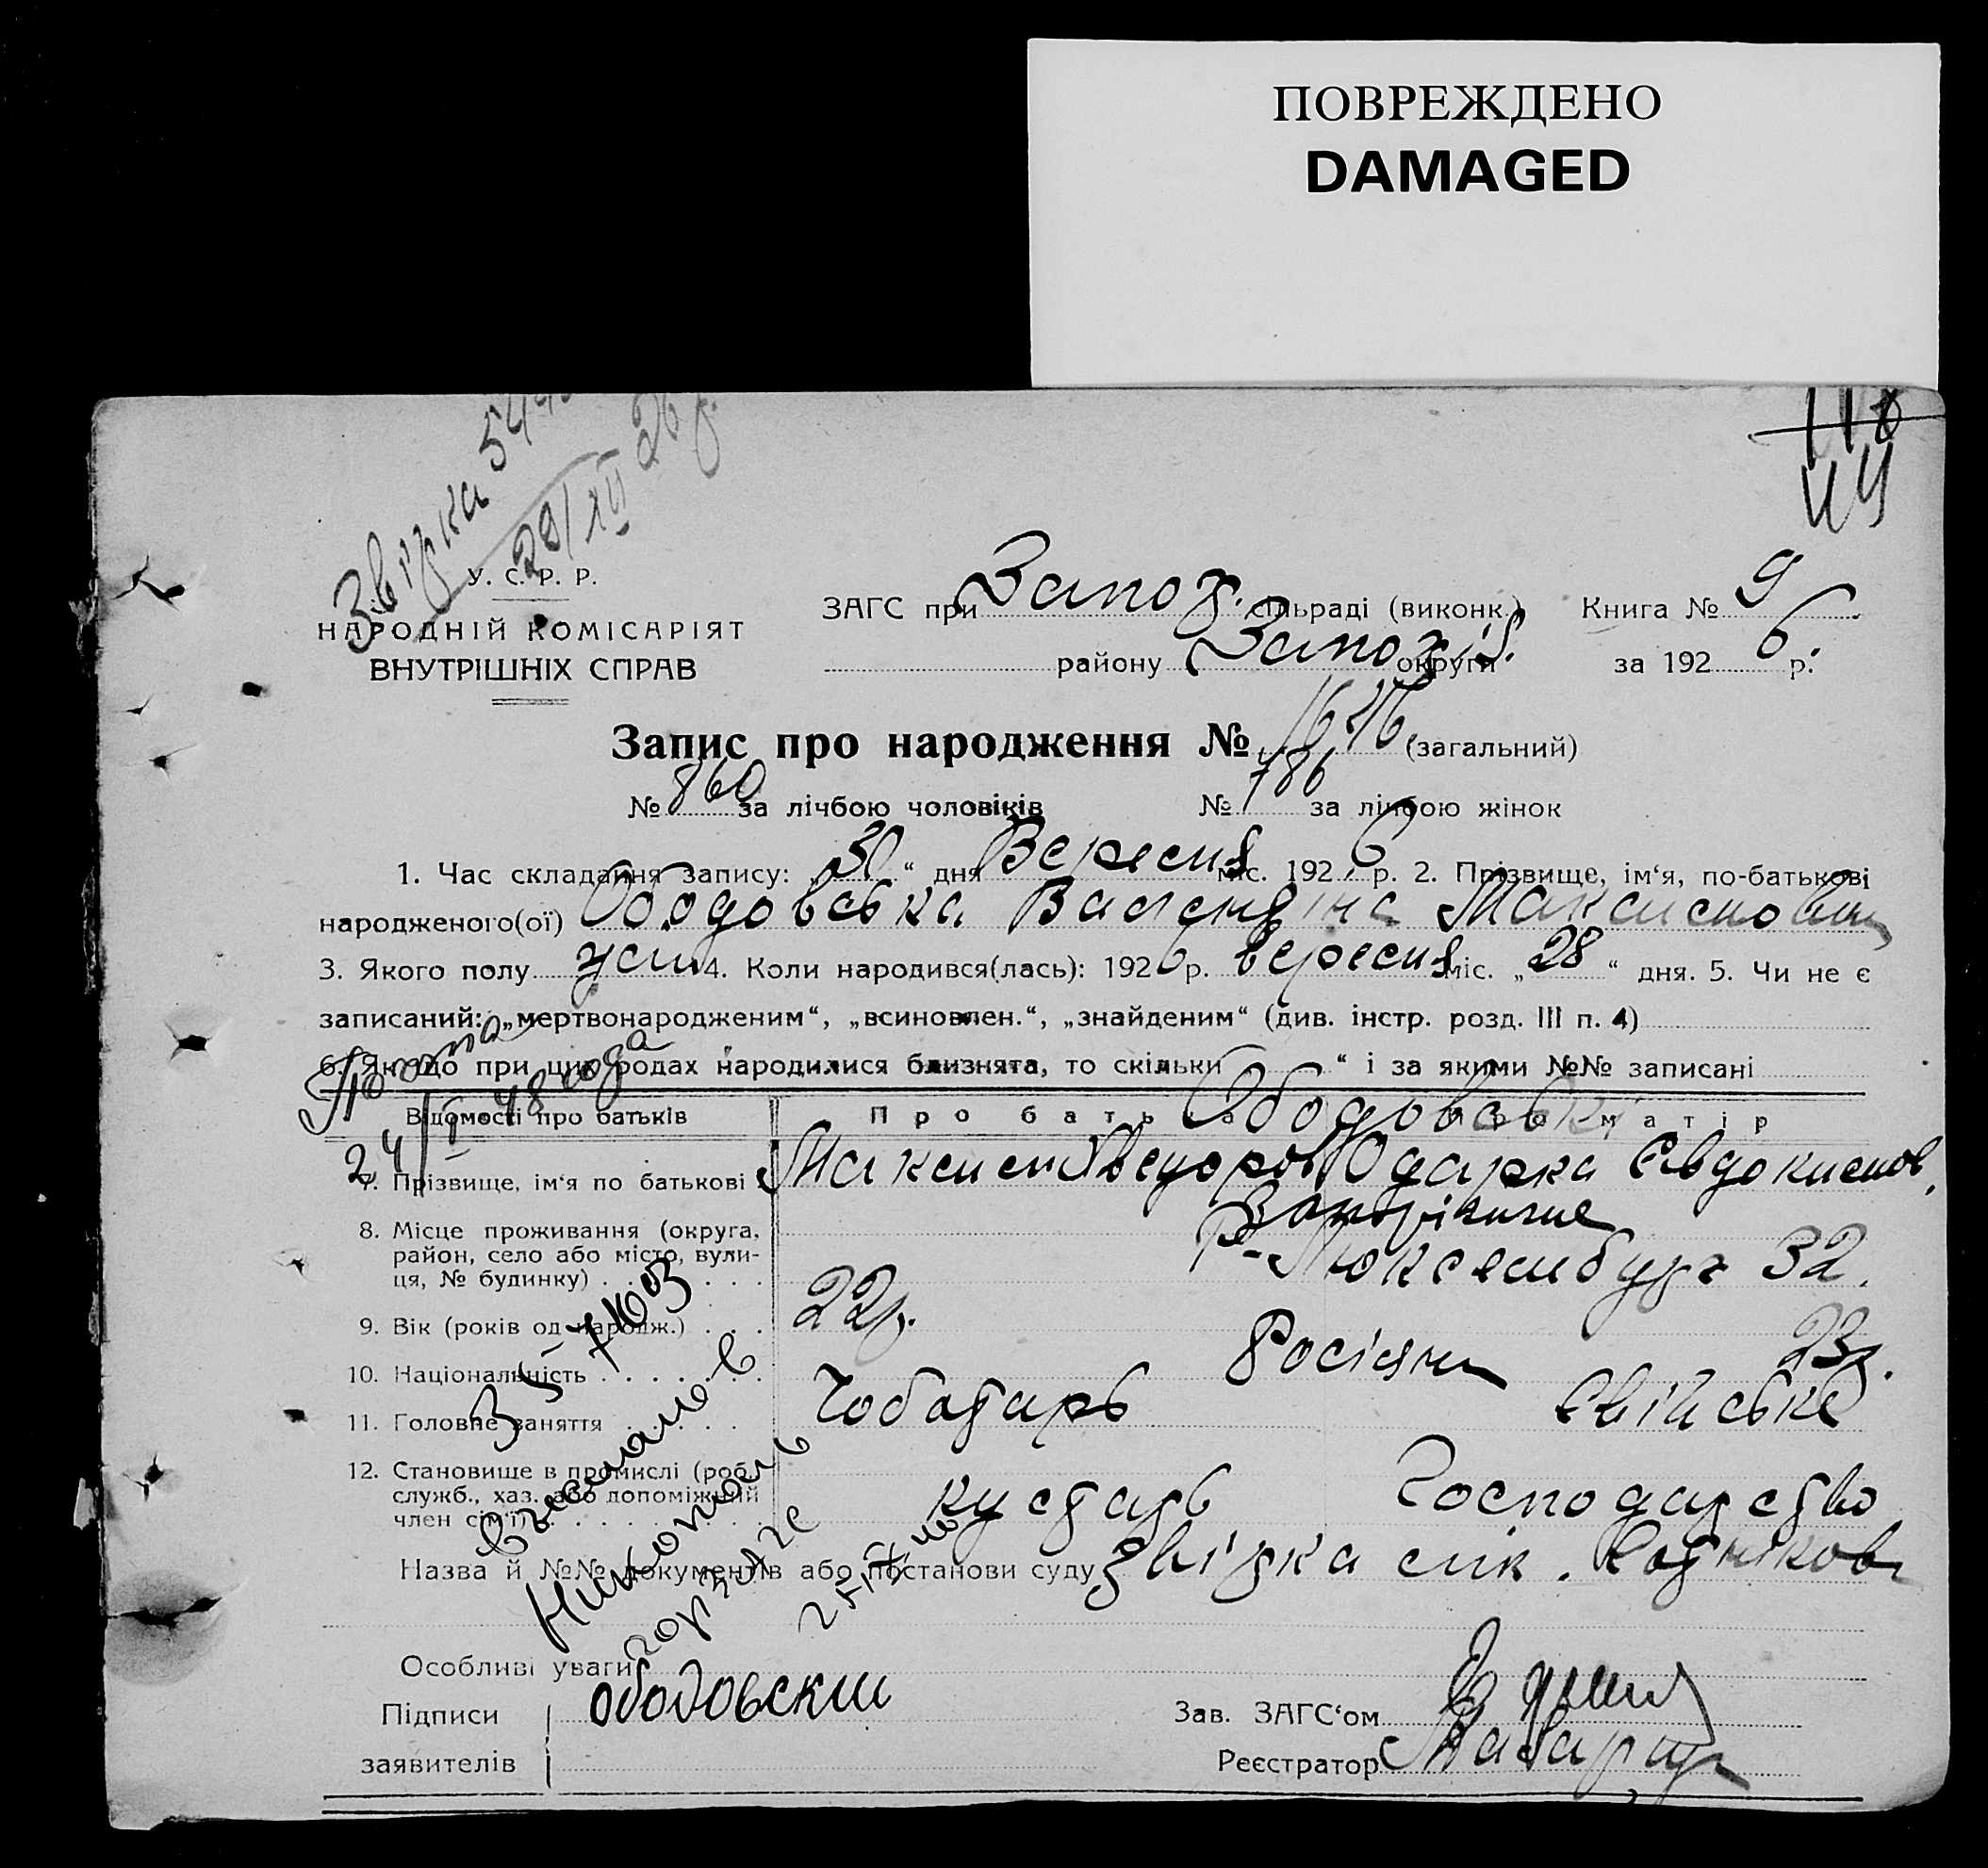 ПОВРЕЖДЕНО
DAMAGED
118
44
Звірка 544
29/XII 26 р.
У. С. Р. Р.
НАРОДНІЙ КОМІСАРІЯТ
ВНУТРІШНІХ СПРАВ
ЗАГС при Запоз. сільраді (виконк.) Книга № 9
району Запоз. округи за 1926 р.
Запис про народження № 1646 (загальний)
№ 860 за лічбою чоловіків № 786 за лічбою жінок
1. Час складання запису: „30“ дня Вересня міс. 1926 р. 2. Прізвище, ім‘я, по-батькові
народженого(ої) Ободовська Валендіна Максимовна
3. Якого полу жен. 4. Коли народився(лась): 1926 р. вересня міс. „28“ дня. 5. Чи не є
записаний: „мертвонародженим“, „всиновлен.“, „знайденим“ (див. інстр. розд. III п. 4)
6. Якщо при цих родах народилися близнята, то скільки “ і за якими №№ записані
24/I-48 года
Відомості про батьків Про батька Про матір
Ободовські
7. Прізвище, ім‘я по батькові Максим Хведоров Одарка Евдокимов.
8. Місце проживання (округа, район, село або місто, вулиця, № будинку) Запоріжжє
Р-Люксембург 32.
9. Вік (років од народж.) 22р. 23р.
10. Національність Росіяни
11. Головне заняття Чоботарь Свійське
12. Становище в промислі (роб., служб., хаз. або допоміжний член сім‘ї) кустарь Господарство
Назва й №№ документів або постанови суду Звірка
Никополь
горЗАГС
Особливі уваги
Підписи заявителів Ободовский
Зав. ЗАГС‘ом
Реєстратор